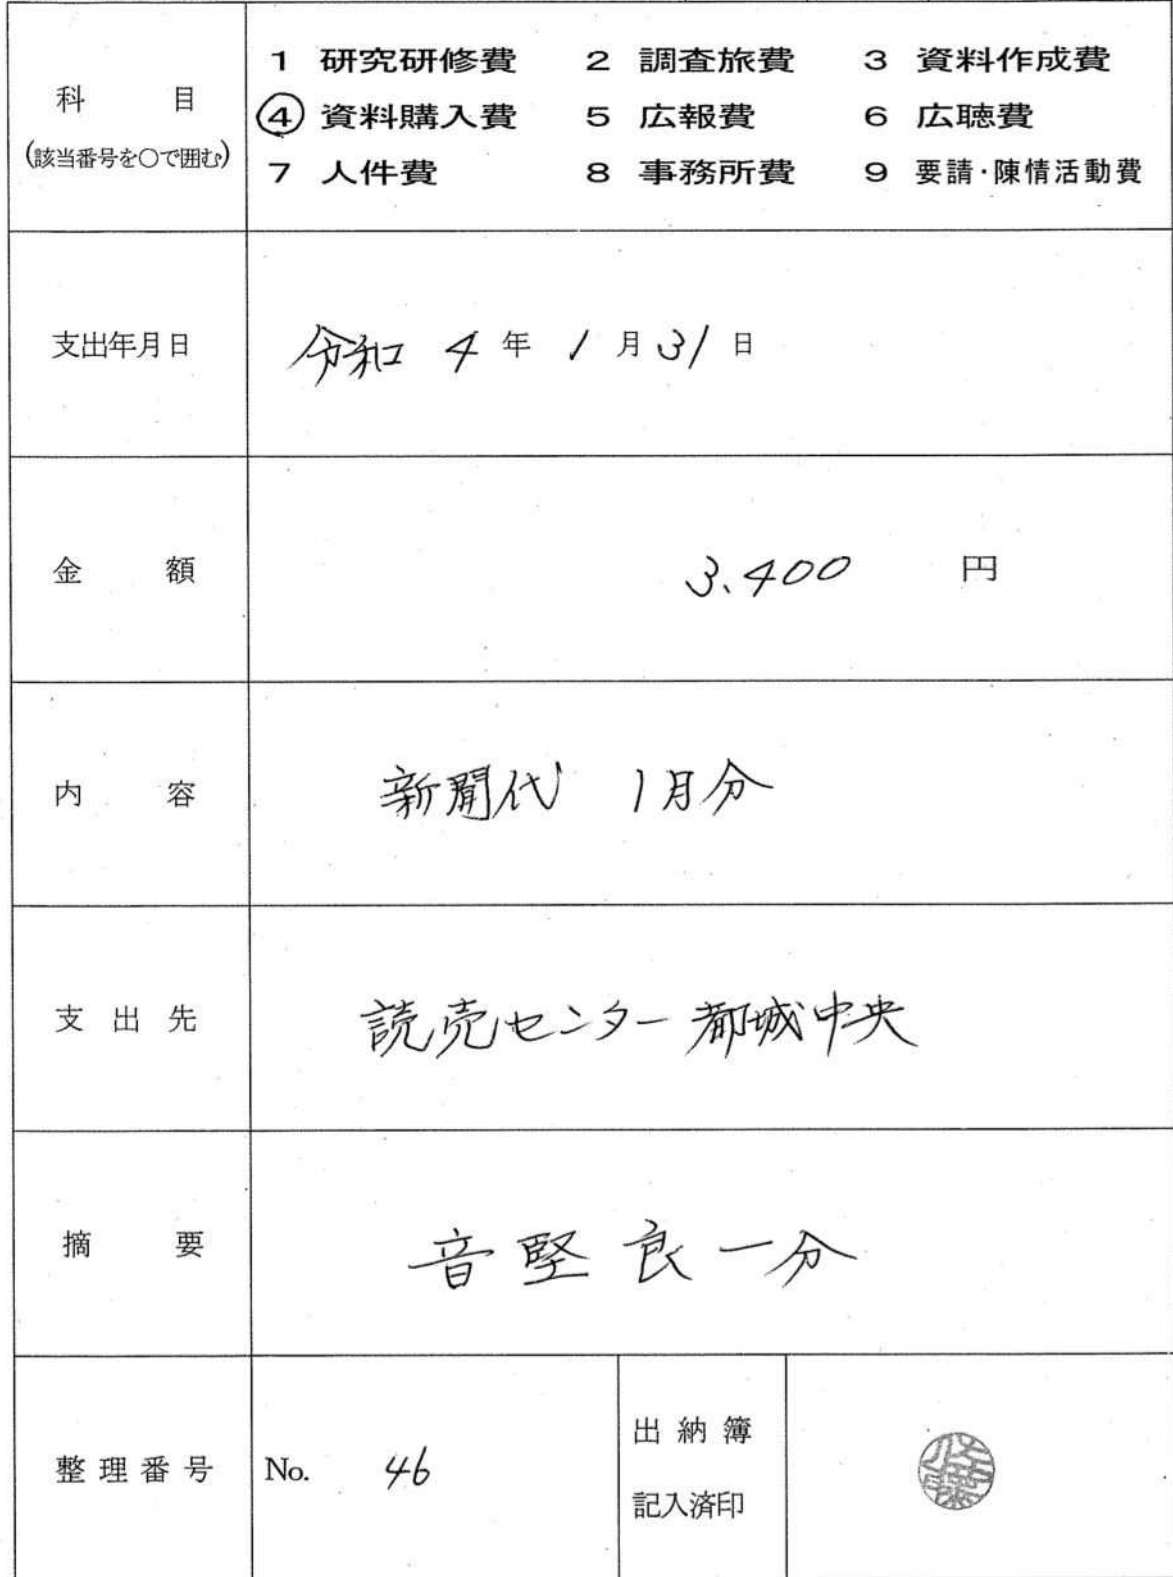 科 目
(該当番号を○で囲む)
1 研究研修費 2 調査旅費 3 資料作成費
④ 資料購入費 5 広報費 6 広聴費
7 人件費 8 事務所費 9 要請・陳情活動費
支出年月日
令和 4 年 1 月 31 日
金 額
3,400 円
内 容
新聞代 1月分
支 出 先
読売センター都城中央
摘 要
音堅 良一分
整 理 番 号
No. 46
出 納 簿
記入済印